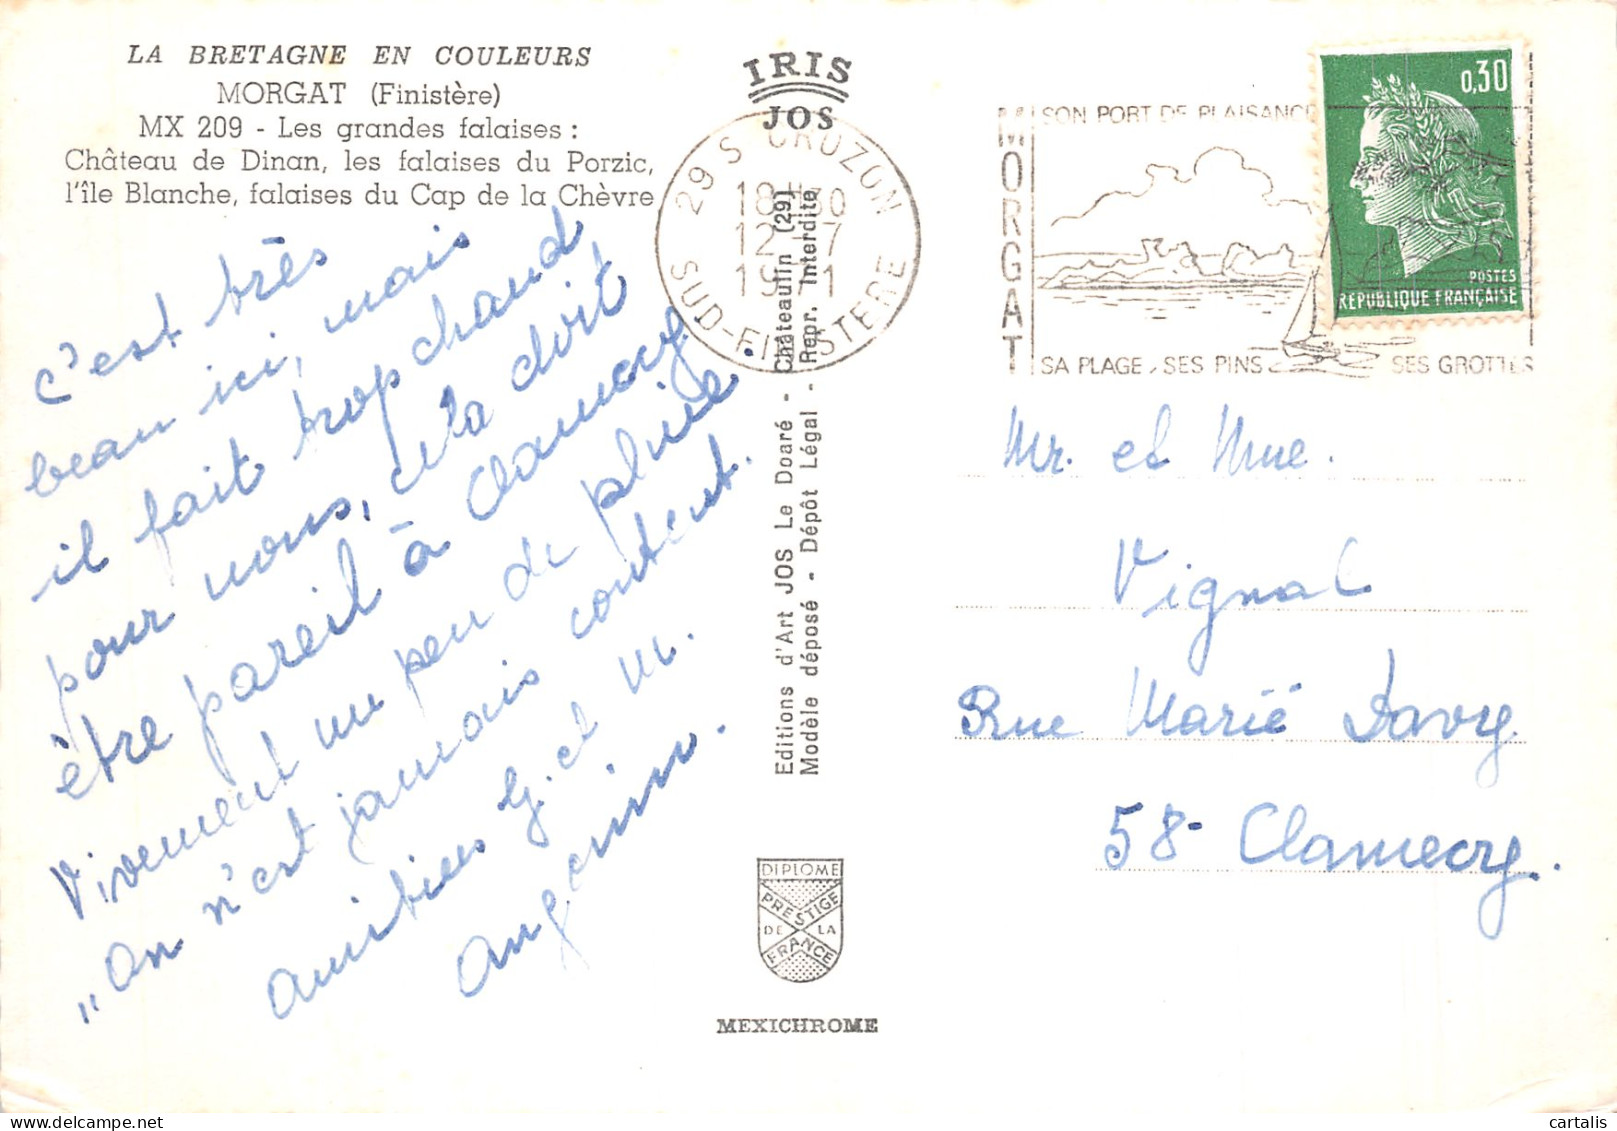 LA BRETAGNE EN COULEURS
MORGAT (Finistère)
MX 209 - Les grandes falaises :
Château de Dinan, les falaises du Porzic,
l'île Blanche, falaises du Cap de la Chèvre
c'est très
beau ici, mais
il fait trop chaud
pour nous, cela doit
être pareil à Clamecy
Vivement un peu de pluie.
"on n'est jamais content.
amitiés G. et M.
IRIS
JOS
29 S CROZON
18H30
12-7
1971
SUD-FINISTERE
Editions d'Art JOS Le Doaré - Châteaulin (29)
Modèle déposé - Dépôt Légal - Repr. Interdite
DIPLOME
PRESTIGE
DE LA
FRANCE
MEXICHROME
MORGAT
SON PORT DE PLAISANCE
SA PLAGE, SES PINS
SES GROTTES
0,30
POSTES
REPUBLIQUE FRANÇAISE
Mr. et Mme.
Vignal
Rue Marië Davy
58- Clamecy.
cartalis